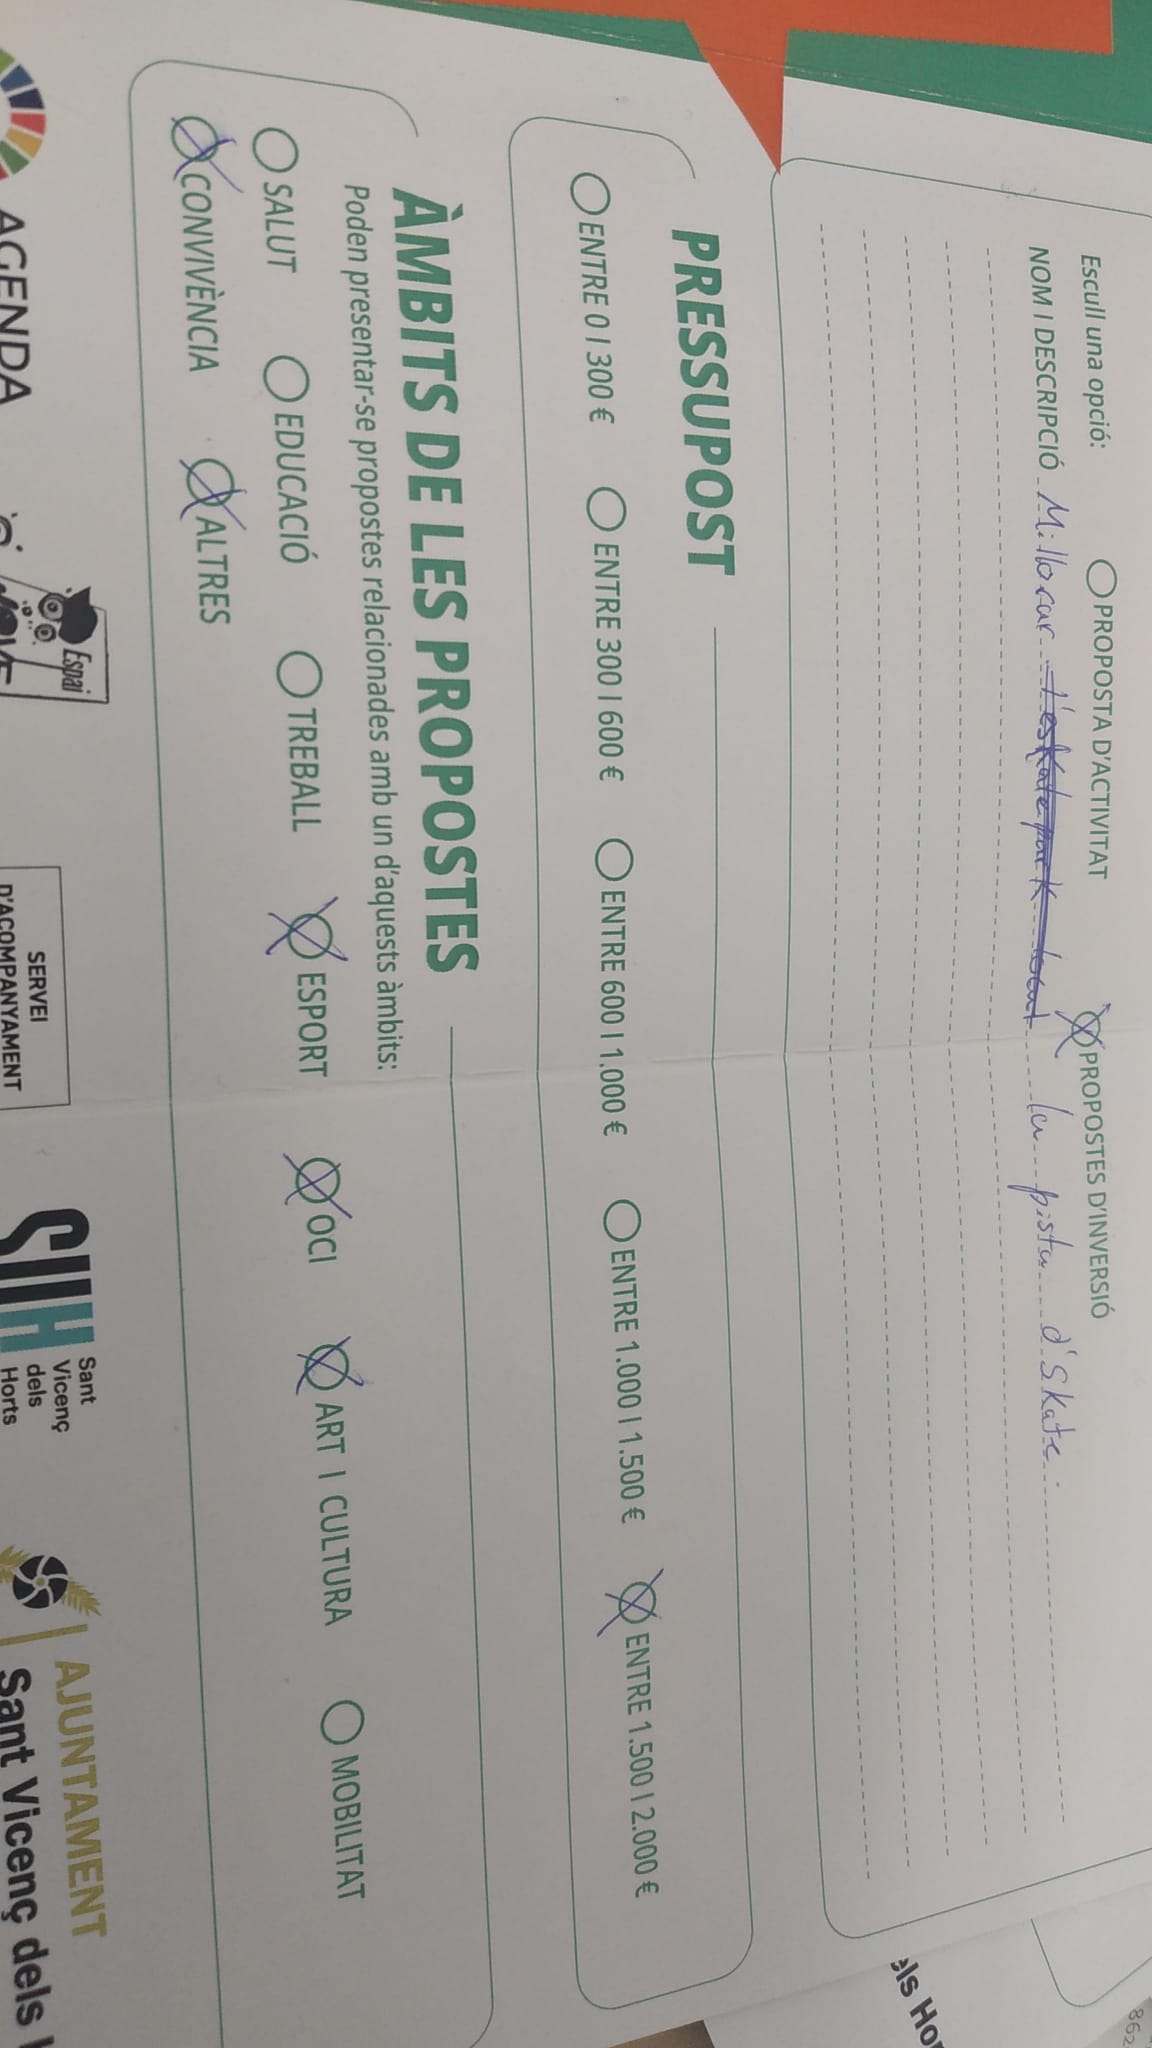 Escull una opció: PROPOSTA D'ACTIVITAT PROPOSTES D'INVERSIÓ
NOM I DESCRIPCIÓ Millorar l'skatepark local la pista d'skate.
PRESSUPOST
ENTRE 0 I 300 € ENTRE 300 I 600 € ENTRE 600 I 1.000 € ENTRE 1.000 I 1.500 € ENTRE 1.500 I 2.000 €
ÀMBITS DE LES PROPOSTES
Poden presentar-se propostes relacionades amb un d'aquests àmbits:
SALUT EDUCACIÓ TREBALL ESPORT OCI ART I CULTURA MOBILITAT
CONVIVÈNCIA ALTRES
AGENDA
Espai
SERVEI
D'ACOMPANYAMENT
SVH
Sant
Vicenç
dels
Horts
AJUNTAMENT
Sant Vicenç dels
els Hor
862